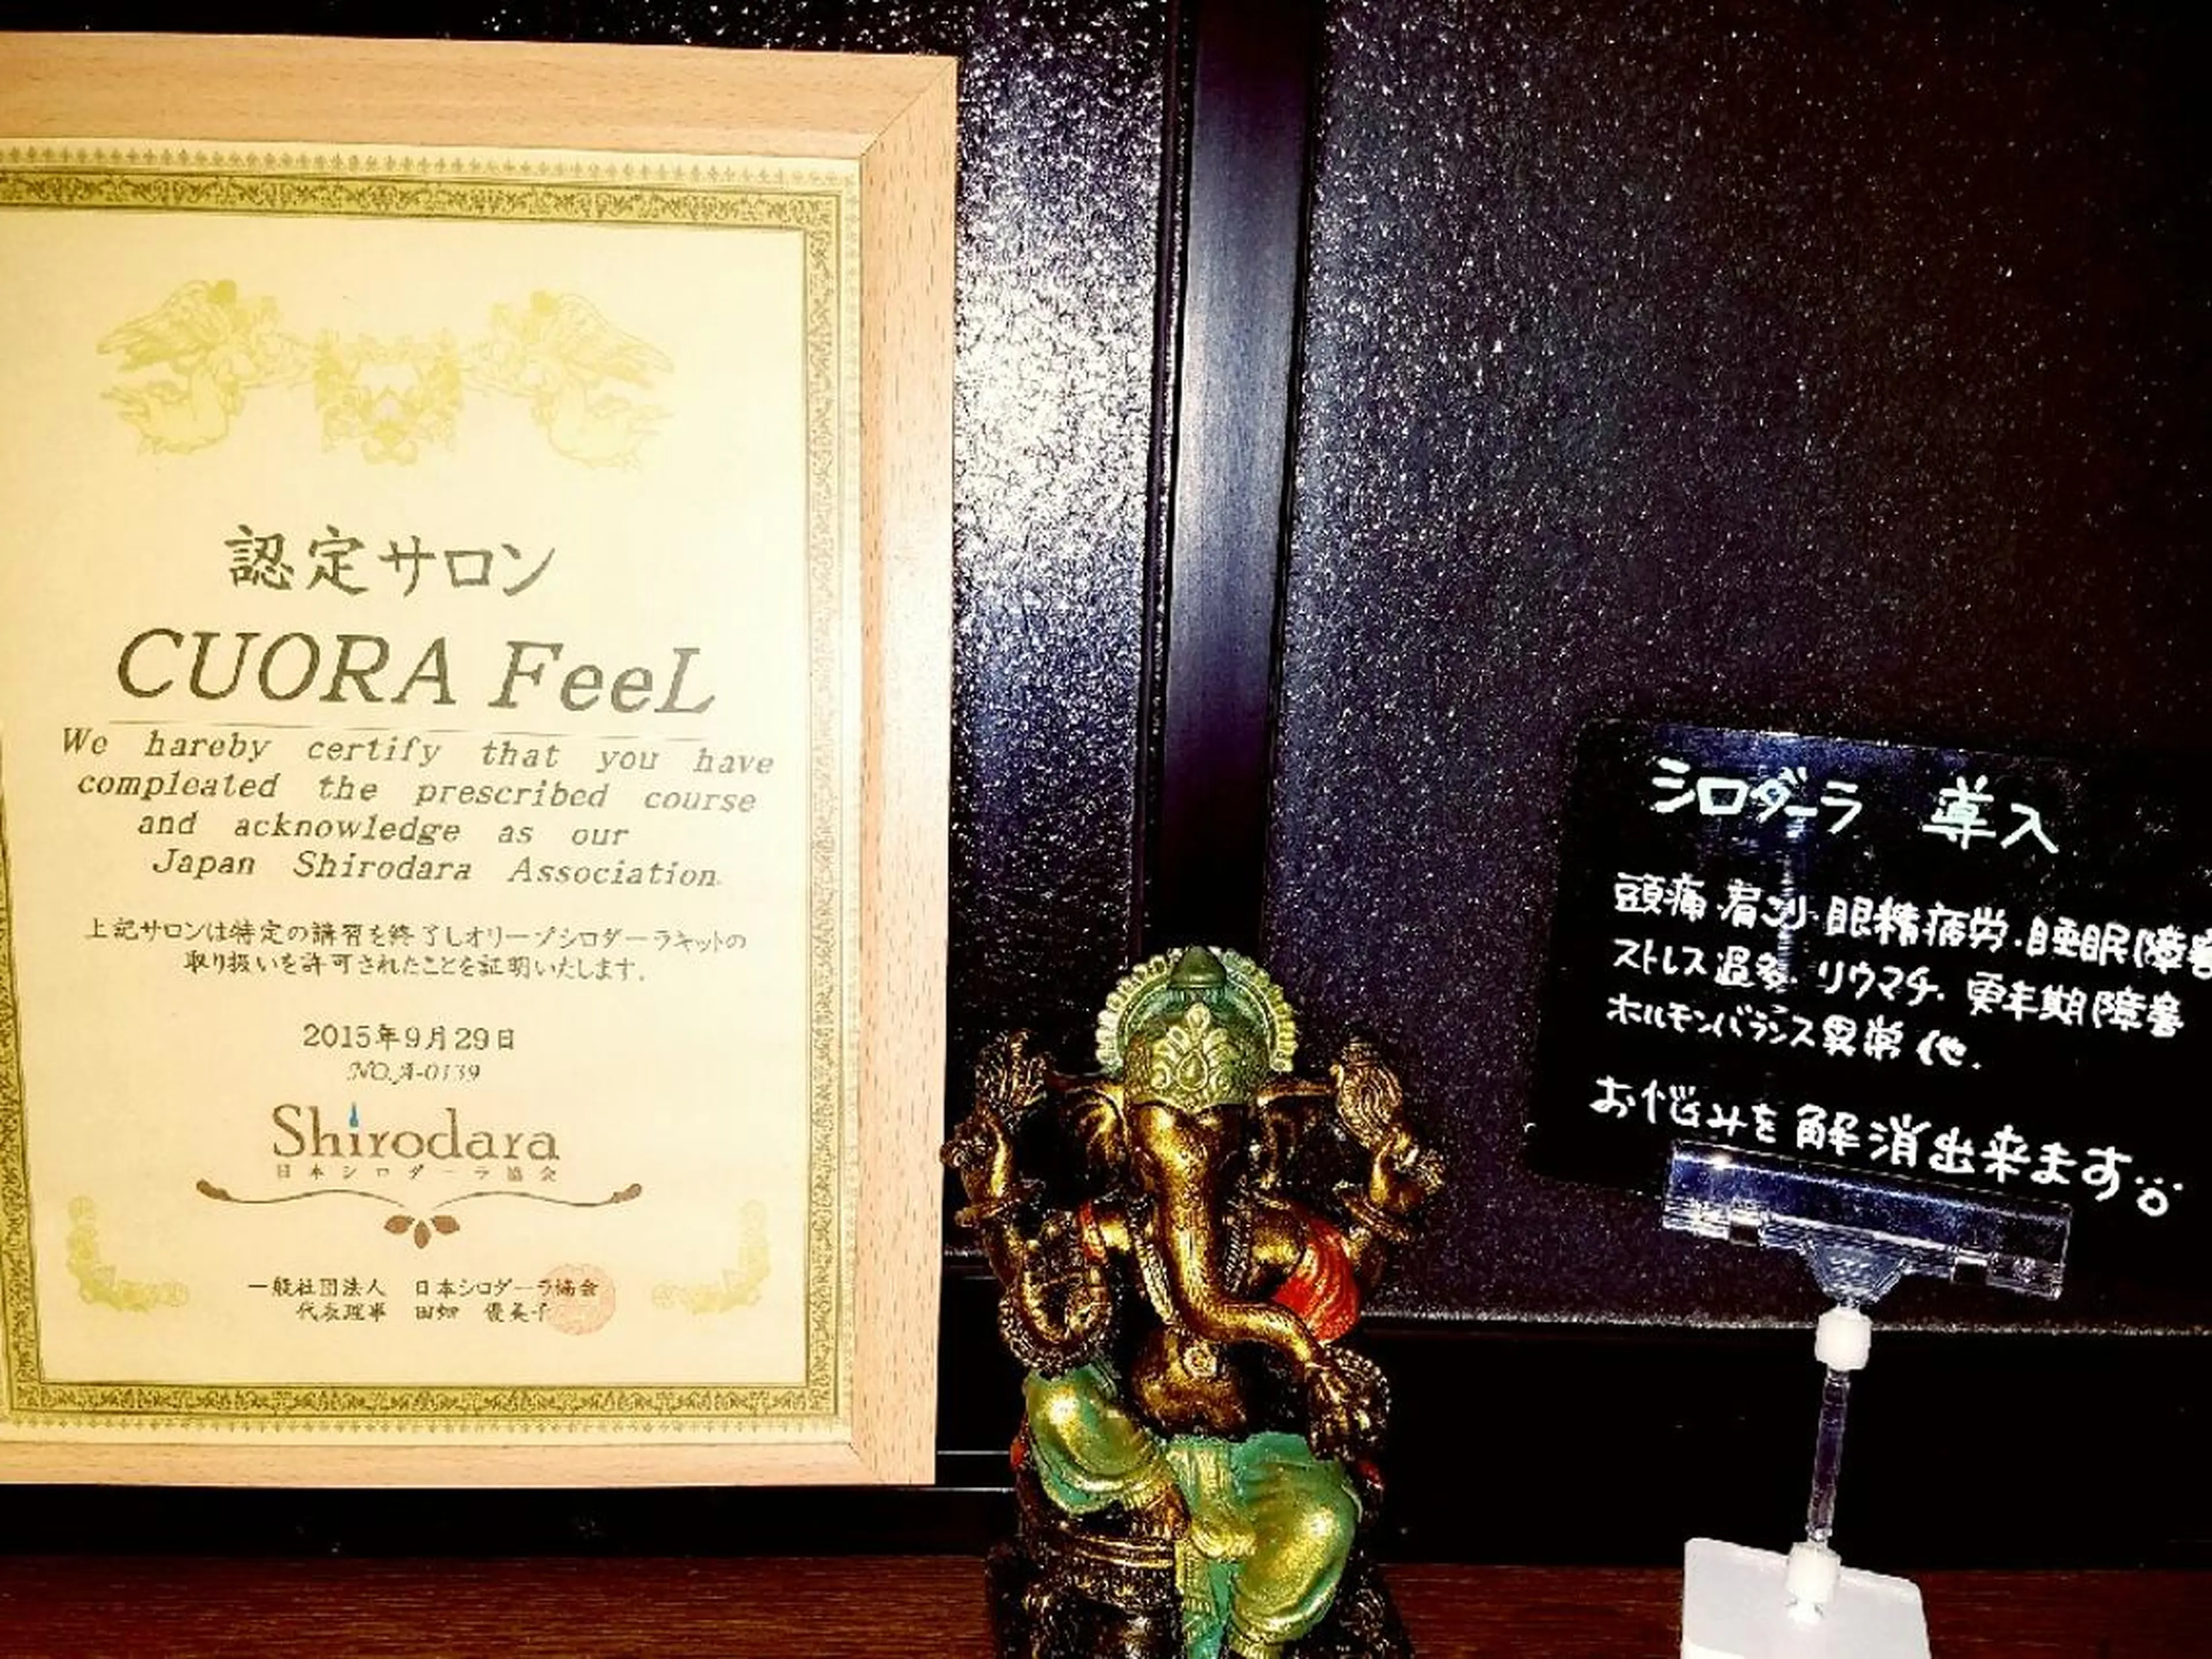 認定サロン
CUORA FeeL
We hareby certify that you have
compleated the prescribed course
and acknowledge as our
Japan Shirodara Association.
上記サロンは特定の講習を終了しオリーブシロダーラキットの
取り扱いを許可されたことを証明いたします。
2015年9月29日
NO.A-0139
Shirodara
日本シロダーラ協会
一般社団法人 日本シロダーラ協会
代表理事 田畑 優美子
シロダーラ 導入
頭痛・肩こり・眼精疲労・睡眠障害
ストレス過多・リウマチ・更年期障害
ホルモンバランス異常 他.
お悩みを解消出来ます。